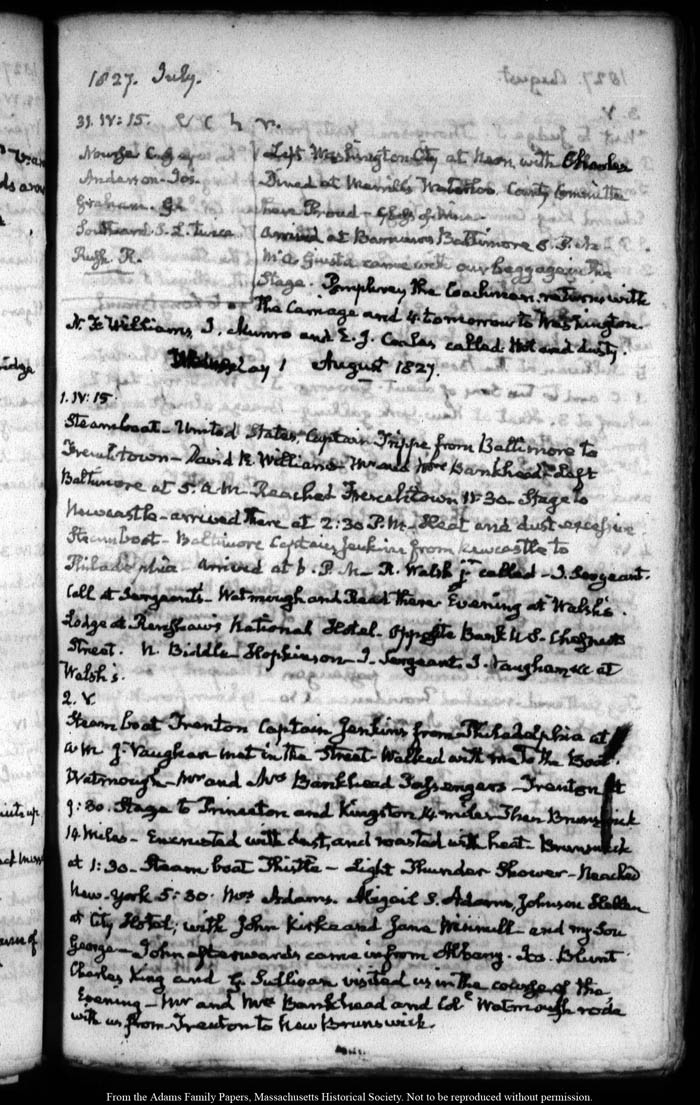 1827. July.
31. IV: 15.
Left Washington City at Noon, with Charles
Anderson. Jos. Dined at Merrill's Waterloo. County Committee
Graham. G. here Proud
Southard S. L. twice arrived at Barnum's Baltimore 8. P.M.
Rush R. Giusta came with our baggage in the
Stage. Pumphrey the Coachman, returns with
the Carriage and 4 tomorrow to Washington.
N. F. Williams, I. Munro and E. J. Coale, called. Hot and dusty.
1 August 1827.
1. IV: 15.
Steamboat. United States, Captain Trippe from Baltimore to
Frenchtown. David R. Williams. Mr and Mrs Bankhead. Left
Baltimore at 5. A.M. Reached Frenchtown 11:30. Stage to
Newcastle. arrived there at 2:30 P.M. Heat and dust excessive.
Steamboat. Baltimore Captain Jenkins from Newcastle to
Philadelphia. arrived at 6. P.M. R. Walsh jr called. J. Sergeant.
Call at Sergeant's. Watmough and Read there. Evening at Walsh's.
Lodge at Renshaw's National Hotel. Opposite Bank U.S. Chesnut
Street. N. Biddle. Hopkinson. J. Sergeant. J. Vaughan &c at
Walsh's.
2. V.
Steam boat Trenton Captain Jenkins from Philadelphia at
A.M. J. Vaughan met in the Street. Walked with me to the Boat.
Watmough. Mr and Mrs Bankhead Passengers. Trenton at
9:30. Stage to Princeton and Kingston 14 miles. Then Brunswick
14 Miles. Encrusted with dust, and roasted with heat. Brunswick
at 1:30. Steam boat Thistle. Light Thunder Shower. Reached
New-York 5:30. Mrs Adams. Abigail S. Adams, Johnson Hellen
at City Hotel; with John Kirke and Jane Winnull and my Son
George. John afterwards came in from Albany. Jos. Blunt
Charles King and G. Sullivan visited us in the course of the
Evening. Mr and Mrs Bankhead and Col. Watmough rode
with us from Trenton to New Brunswick.
From the Adams Family Papers, Massachusetts Historical Society. Not to be reproduced without permission.